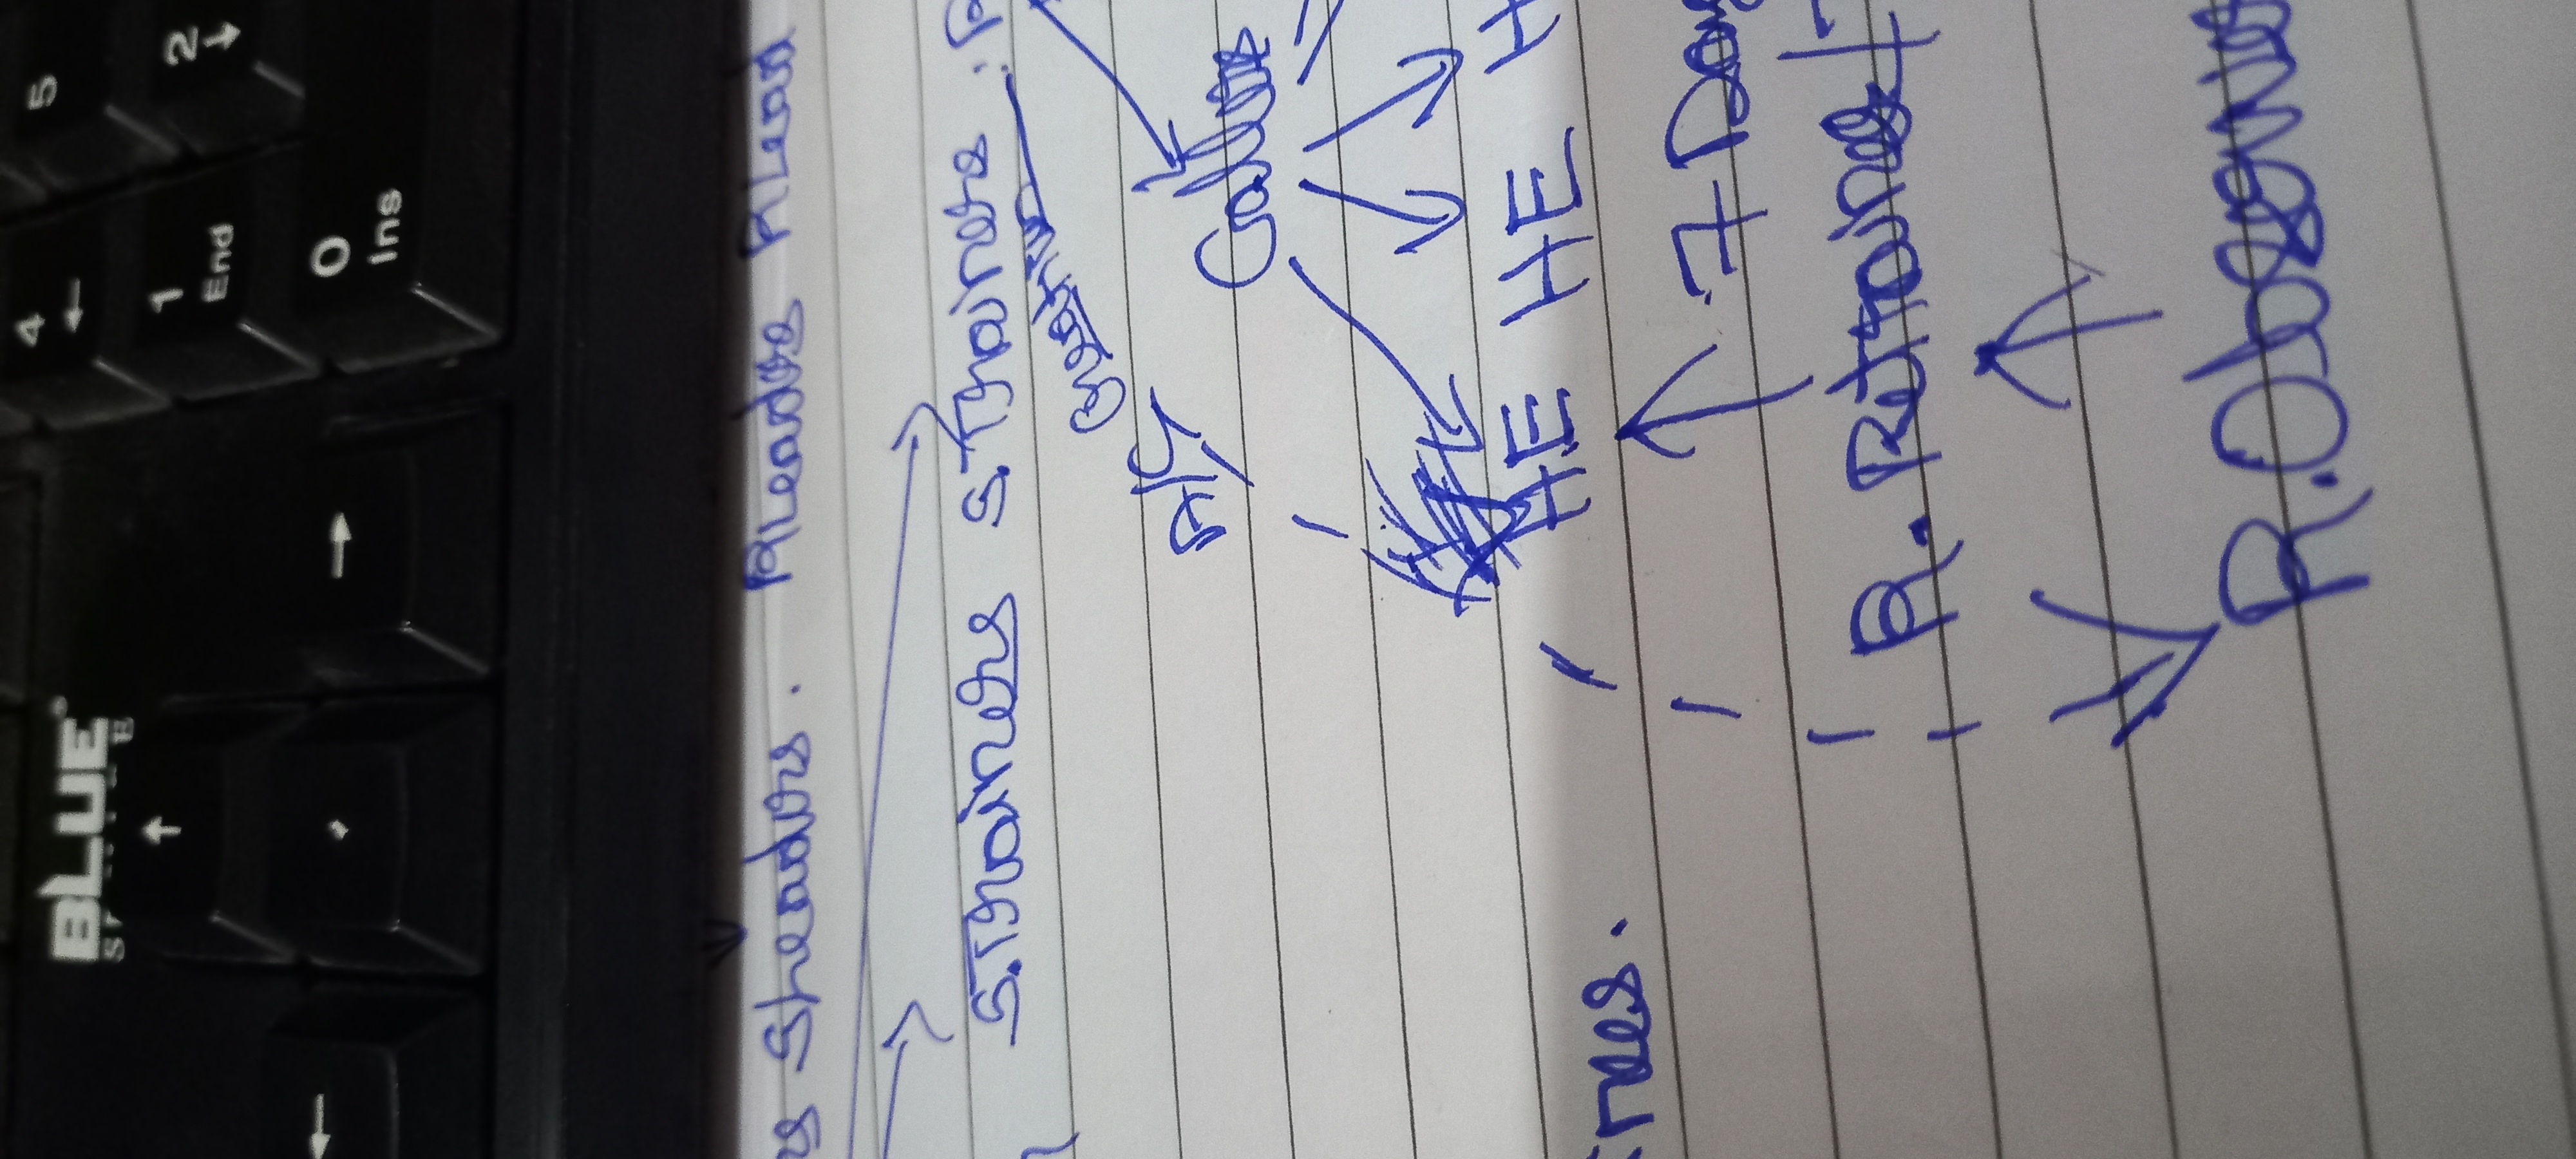 BLUE
4 5
1 2
End
0
Ins
SLeaders. RLeaders RLead
S.Trainers S.Trainers :R
A/C Creation
Callers
HE HE H
nees.
7 Day
R. Rettainer/T
R.Observe